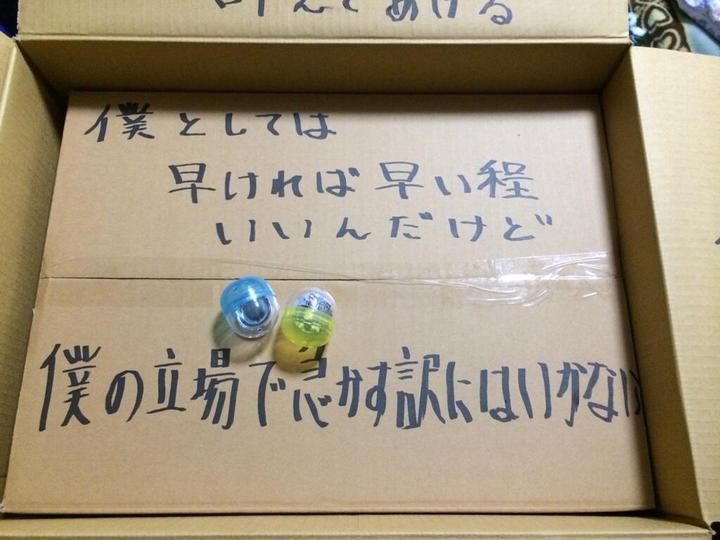 叶えてあげる
僕としては
早ければ早い程
いいんだけど
僕の立場で急かす訳にはいかない